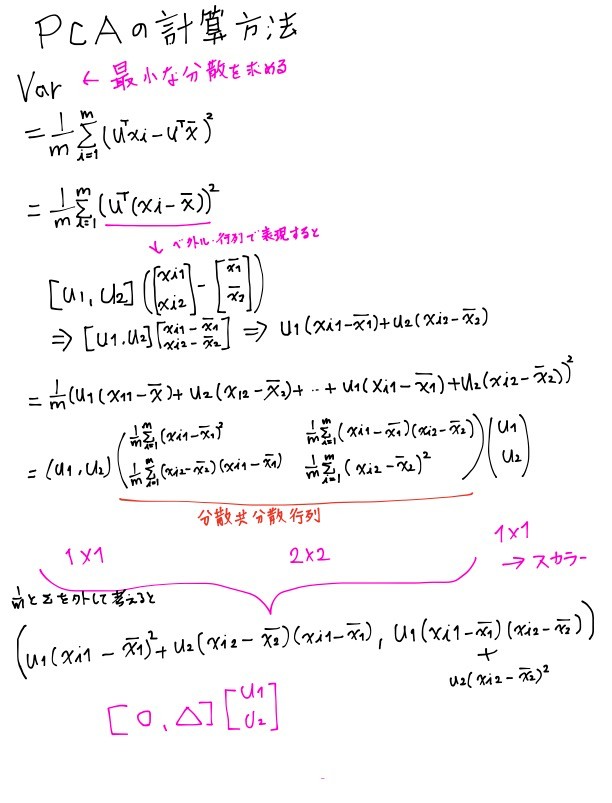 PCAの計算方法
Var ← 最小な分散を求める
= 1/m Σ_{i=1}^{m} (U^T xi - U^T x̄)^2
= 1/m Σ_{i=1}^{m} (U^T (xi - x̄))^2
↓ ベクトル・行列で表現すると
[U1, U2] ([xi1 xi2] - [x̄1 x̄2])
⇒ [U1, U2] [xi1 - x̄1 xi2 - x̄2] ⇒ U1(xi1 - x̄1) + U2(xi2 - x̄2)
= 1/m (U1(x11 - x̄) + U2(x12 - x̄2) + ‥ + U1(xi1 - x̄1) + U2(xi2 - x̄2))^2
= (U1, U2) (1/m Σ_{i=1}^{m} (xi1 - x̄1)^2 1/m Σ_{i=1}^{m} (xi1 - x̄1)(xi2 - x̄2)
1/m Σ_{i=1}^{m} (xi2 - x̄2)(xi1 - x̄1) 1/m Σ_{i=1}^{m} (xi2 - x̄2)^2) (U1 U2)
分散共分散行列
1×1 2×2 1×1
→ スカラー
1/m と Σ を外して考えると
(U1(xi1 - x̄1)^2 + U2(xi2 - x̄2)(xi1 - x̄1), U1(xi1 - x̄1)(xi2 - x̄2))
+
U2(xi2 - x̄2)^2
[○, △] [U1 U2]